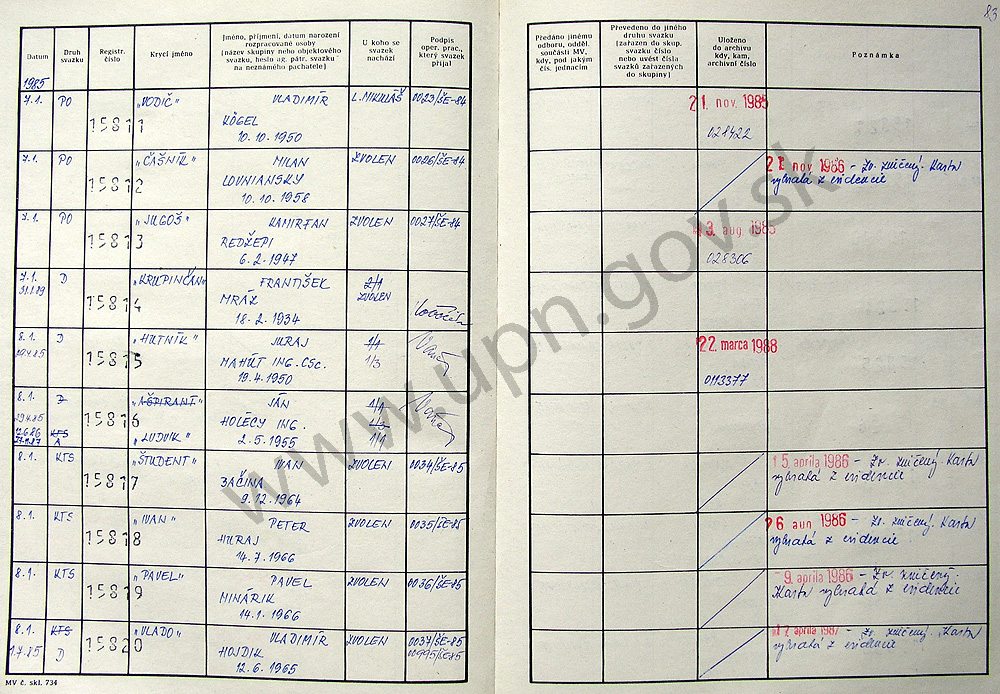 83
Datum
Druh svazku
Registr. číslo
Krycí jméno
Jméno, příjmení, datum narození
rozpracované osoby
(název skupiny nebo objektového
svazku, heslo ag. pátr. svazku
na neznámého pachatele)
U koho se
svazek
nachází
Podpis
oper. prac.,
který svazek
přijal
Předáno jinému
odboru, odděl.
součásti MV,
kdy, pod jakým
čís. jednacím
Převedeno do jiného
druhu svazku
(zařazen do skup.
svazku číslo
nebo uvést čísla
svazků zařazených
do skupiny)
Uloženo
do archivu
kdy, kam,
archivní číslo
Poznámka
1985
7.1. PO 15811 „VODIČ“ VLADIMÍR L. MIKULÁŠ 0023/ŠE-84 21. nov. 1985
KÖGEL
10.10.1950 028422
7.1. PO 15812 „ČAŠNÍK“ MILAN ZVOLEN 0026/ŠE-84 nov 1986 – Zv. zničený. Karta
LOVNIANSKY vybratá z evidencie
10.10.1958
7.1. PO 15813 „JUGOŠ“ ZVOLEN 0027/ŠE-84 3. aug. 1985
REDŽEPI
6.2.1947 028306
7.1. D 15814 „KRUPINČAN“ FRANTIŠEK 2/1
ZVOLEN
MRÁZ
18.2.1934
8.1. D 15815 „HUTNÍK“ JURAJ 1/1 22. marca 1988
MAHÚT ING. CSc. 1/3
19.4.1950 0113377
8.1. D 15816 „AŠPIRANT“ JÁN 1/1
29.4.85 HOLÉCY ING.
KTS
A „LUDVIK“ 2.5.1955 1/1
8.1. KTS 15817 „ŠTUDENT“ IVAN ZVOLEN 0034/ŠE-85 15. apríla 1986 – Zv. zničený Karta
BAČINA vybratá z evidencie
9.12.1964
8.1. KTS 15818 „IVAN“ PETER ZVOLEN 0035/ŠE-85 1986 – Zv. zničený. Karta
HURAJ vybratá z evidencie
14.7.1966
8.1. KTS 15819 „PAVEL“ PAVEL ZVOLEN 0036/ŠE-85 9. apríla 1986 – Zv. zničený.
MINÁRIK Karta vybratá z evidencie
14.1.1966
8.1. KTS 15820 „VLADO“ VLADIMÍR ZVOLEN 0037/ŠE-85 apríla 1987 – Zv. zničený. Karta
1.7.85 D HOJDIK 00995/ŠE-85 vybratá z evidencie
12.6.1965
MV č. skl. 734
www.upn.gov.sk